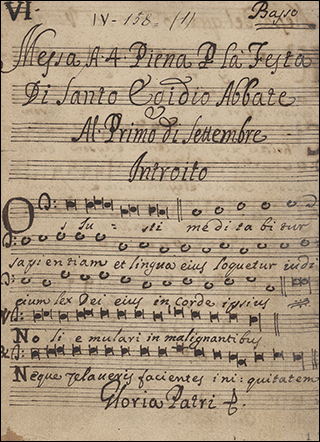 VI.
Basso
IV-158. /11
Messa A 4 Piena P la Festa
Di Santo Egidio Abbate
Al Primo di Settembre
Introito
Os Ju - sti meditabitur
sapientiam et lingua eius loquetur iudi
cium lex Dei eius in Corde ipsius
Noli emulari in malignantibus
Neque zelaveris facientes ini: quitatem
Gloria Patri